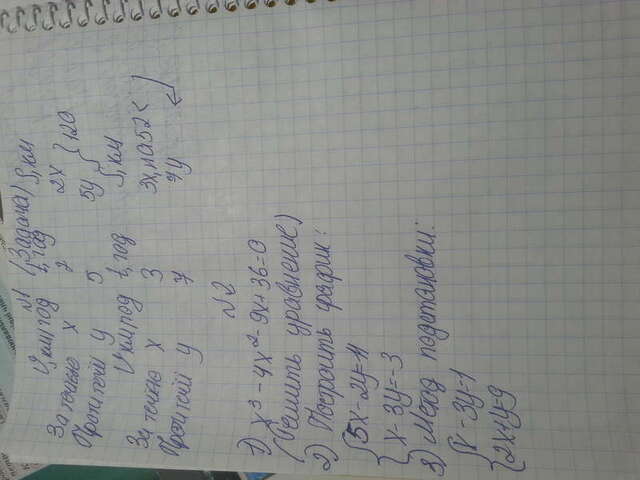 №1 (Задача)
V, км/год t, год S, км
За течією x 2 2x } 120
Проти течії y 5 5y
V км/год t, год S, км
За течією x 3 3x, на 52 <
Проти течії y 7 7y
№2
1) x³ - 4x² - 9x + 36 = 0
(Решить уравнение)
2) Построить график:
{ 5x - 2y = 11
{ x - 3y = -3
3) Метод подстановки:
{ x - 3y = 1
{ 2x + y = 9